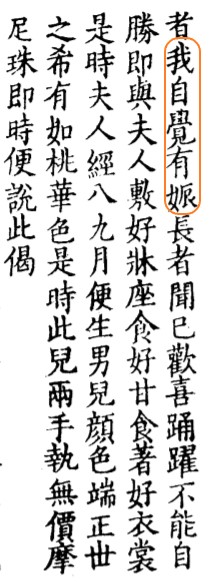 者我自覺有娠長者聞已歡喜踊躍不能自
勝即與夫人敷好牀座食好甘食著好衣裳
是時夫人經八九月便生男兒顏色端正世
之希有如桃華色是時此兒兩手執無價摩
尼珠即時便說此偈